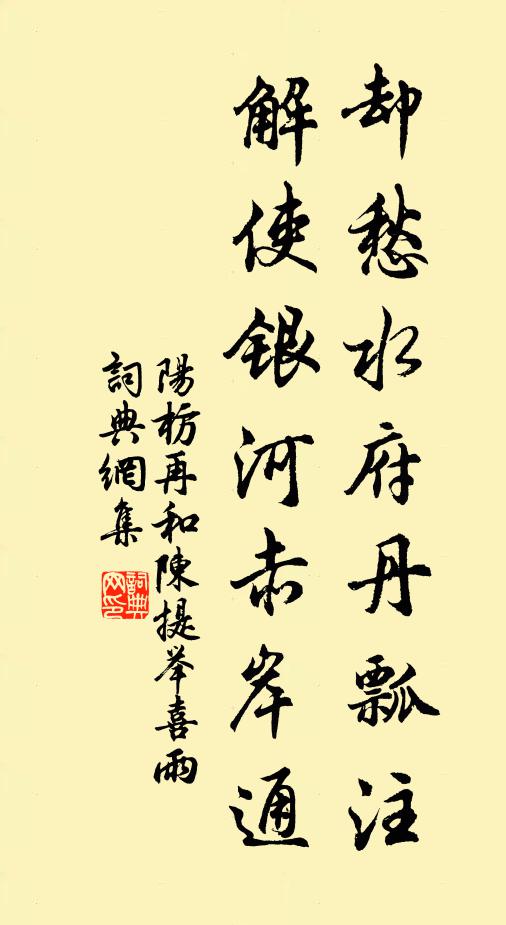 却愁水府丹瓢注
解使銀河赤岸通
陽枋再和陳提举喜雨
詞典網集
詞典网印